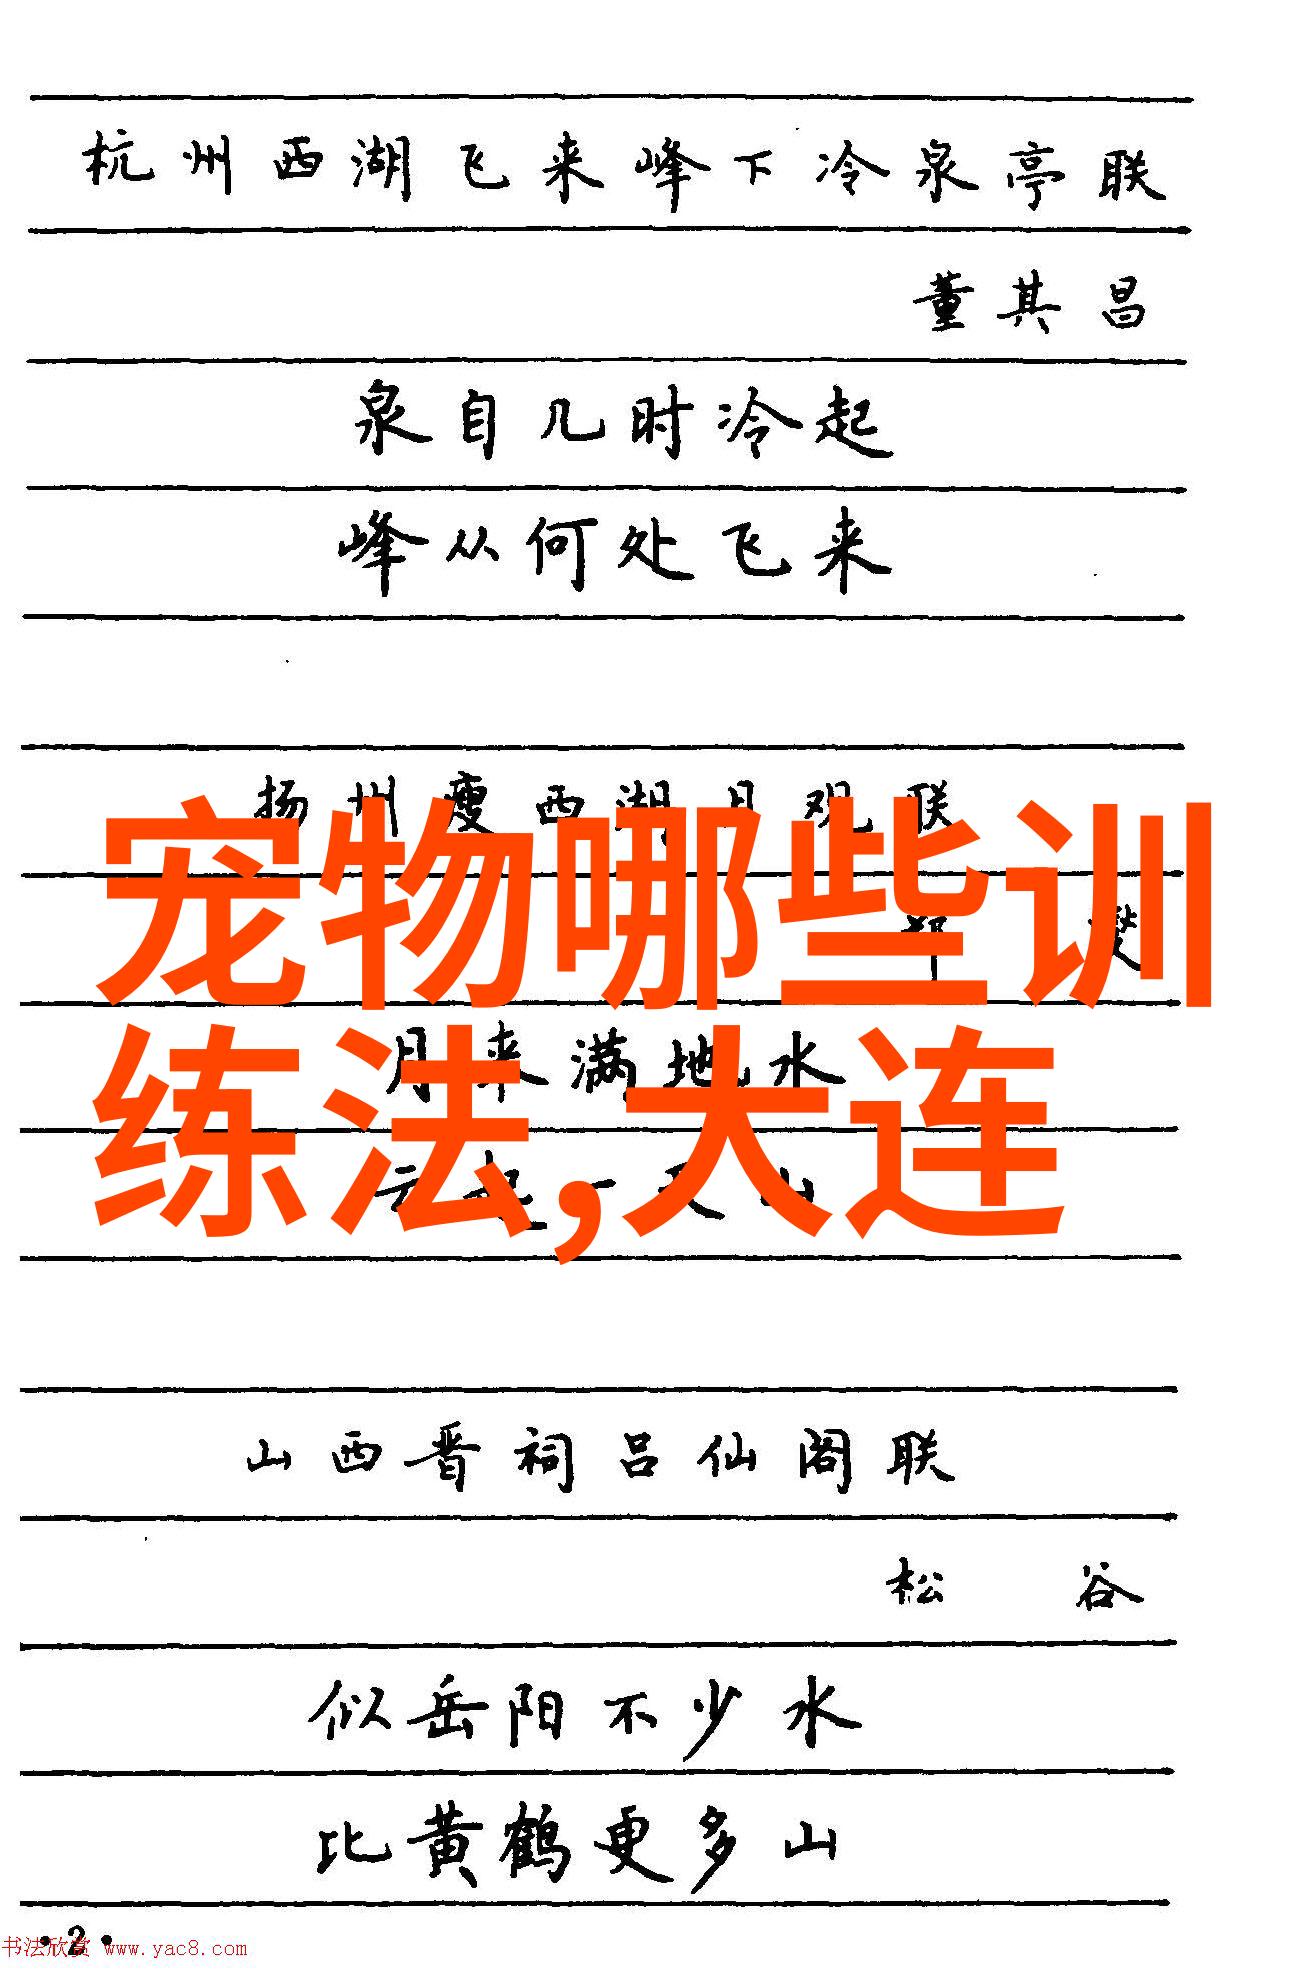 杭州西湖飞来峰下冷泉亭联
董其昌
泉自几时冷起
峰从何处飞来
扬州瘦西湖月观联
宠物哪些训
郑燮
月来满地水
练法,大连
云起一天山
山西晋祠吕仙阁联
松谷
似岳阳不少水
比黄鹤更多山
·2·
书法欣赏 www.yac8.com